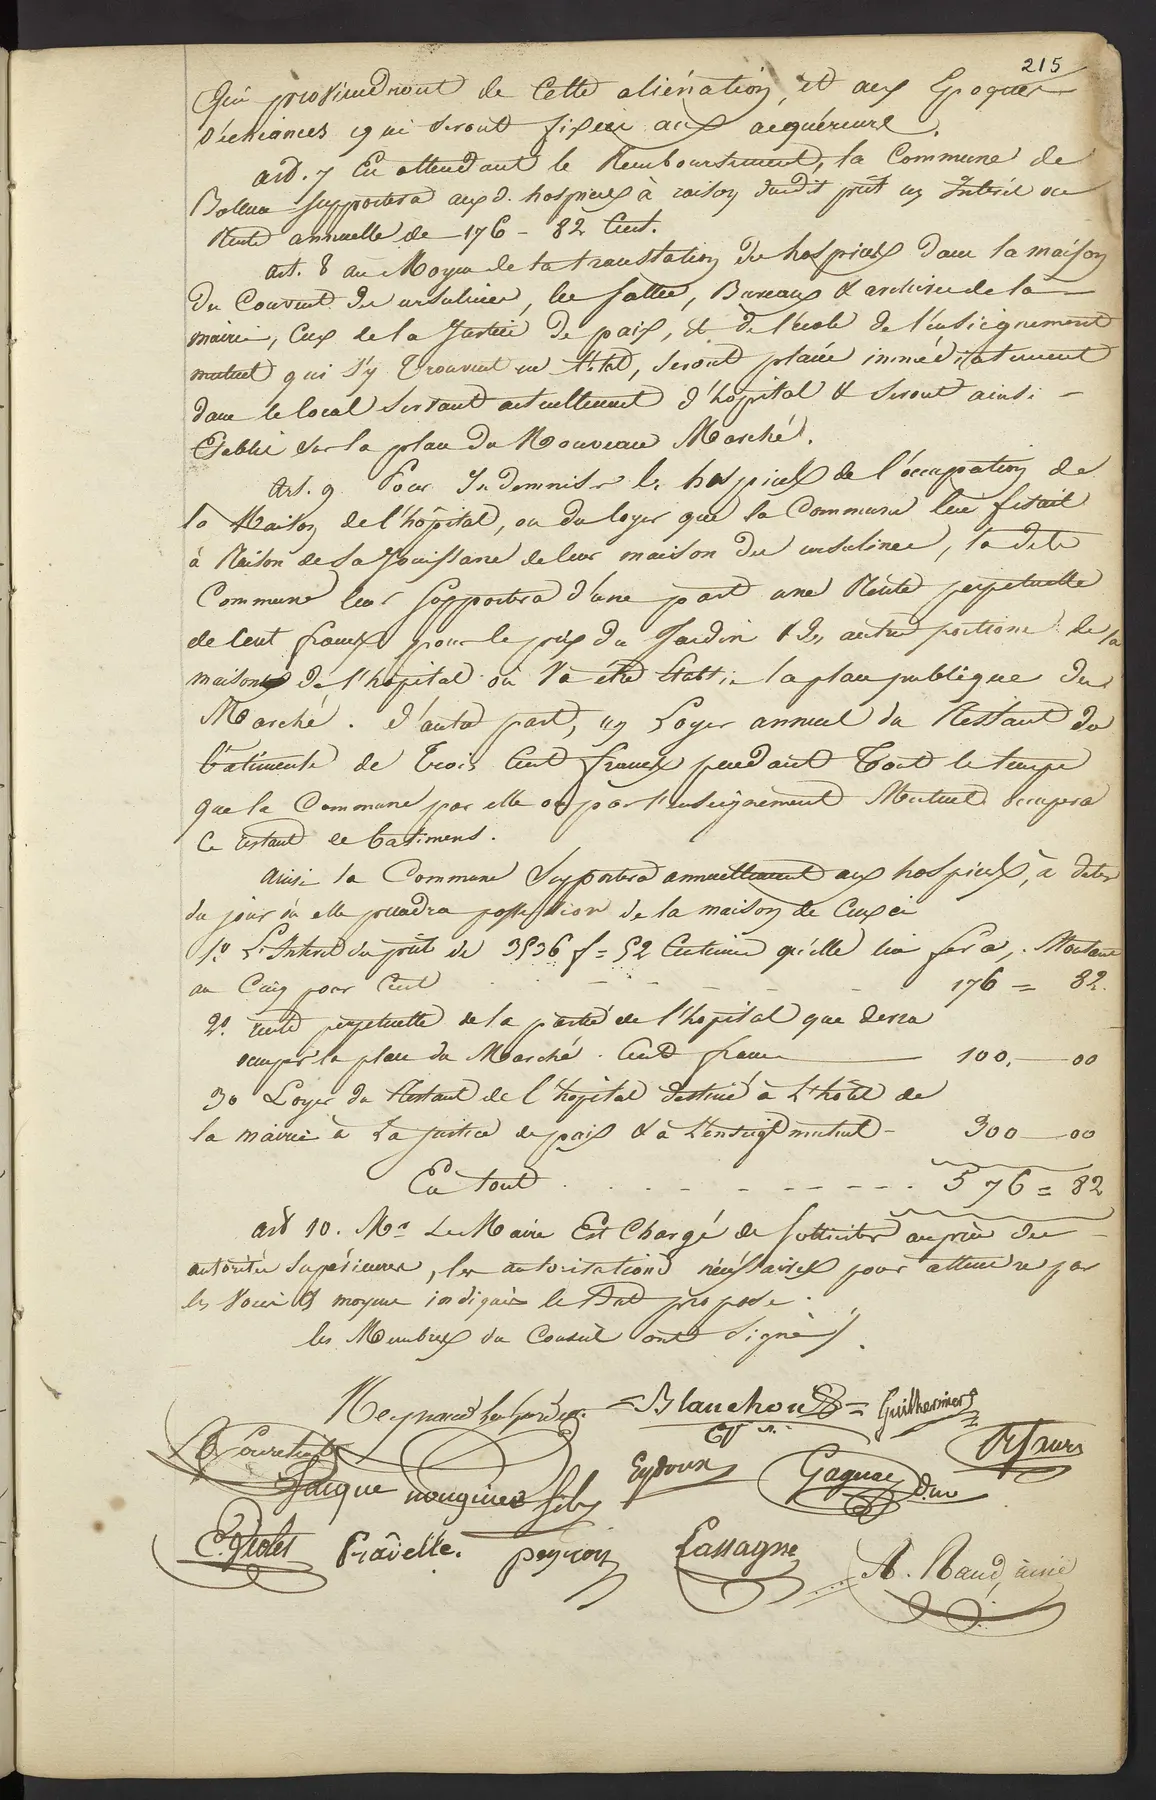 215
qui proviendront de cette aliénation, et aux Epoques
d'échéances qui seront fixées aux acquéreurs.
art. 7 En attendant le Remboursement, la Commune de
Bollene supportera aux d. hospices à raison dudit prêt un Intérêt ou
Rente annuelle de 176 - 82 Cent.
art. 8 au Moyen de la translation des hospices dans la maison
du Couvent des ursulines, les salles, Bureaux & archives de la
mairie, Ceux de la Justice de paix, et de l'école de l'enseignement
mutuel qui s'y trouvent en l'état, seront placés immédiatement
dans le local servant actuellement d'hopital & seront ainsi -
Etablis sur la place du Nouveau Marché.
Art. 9 Pour Indemniser les hospices de l'occupation de
la Maison de l'hôpital, ou du loyer que la Commune leur fesait
à Raison de sa Jouissance de leur maison des ursulines, la dite
Commune leur supportera d'une part une Rente perpetuelle
de Cent francs pour le prix du Jardin & des autres portions de la
maison de l'hopital où va être Etablie la place publique du
Marché. d'autre part, un Loyer annuel du Restant du
batiments de Trois Cent francs pendant Tout le temps
que la Commune par elle ou par l'enseignement Mutuel occupera
ce restant de batimens.
Ainsi la Commune supportera annuellement aux hospices, à dater
du jour où elle prendra possession de la maison de Ceux ci
1º L'Interet du prêt de 3536 f = 52 Centimes qu'elle leur fera, Montant
au Cinq pour Cent - - - - - 176 = 82.
2º rente perpetuelle de la partie de l'hopital que devra
occuper la place du Marché. Cent francs 100. — 00
3º Loyer du Restant de l'hopital destiné à L'hôtel de
la mairie à La justice de paix & à L'enseigt mutuel - 300 — 00
En tout . . - - - - - - - . . . 576 = 82
art 10. Mr Le Maire Est Chargé de solliciter auprès des
autorités Supérieures, les autorisations nécéssaires pour atteindre par
les voies & moyens indiqués le But proposé.
les Membres du Conseil ont Signés.
= Blanchon = Guilhermier
Faure
Jacque nougier fils Eydoux Gagnay
C. Violès Fravelle. peyron Lassagne A. Naud, ainé